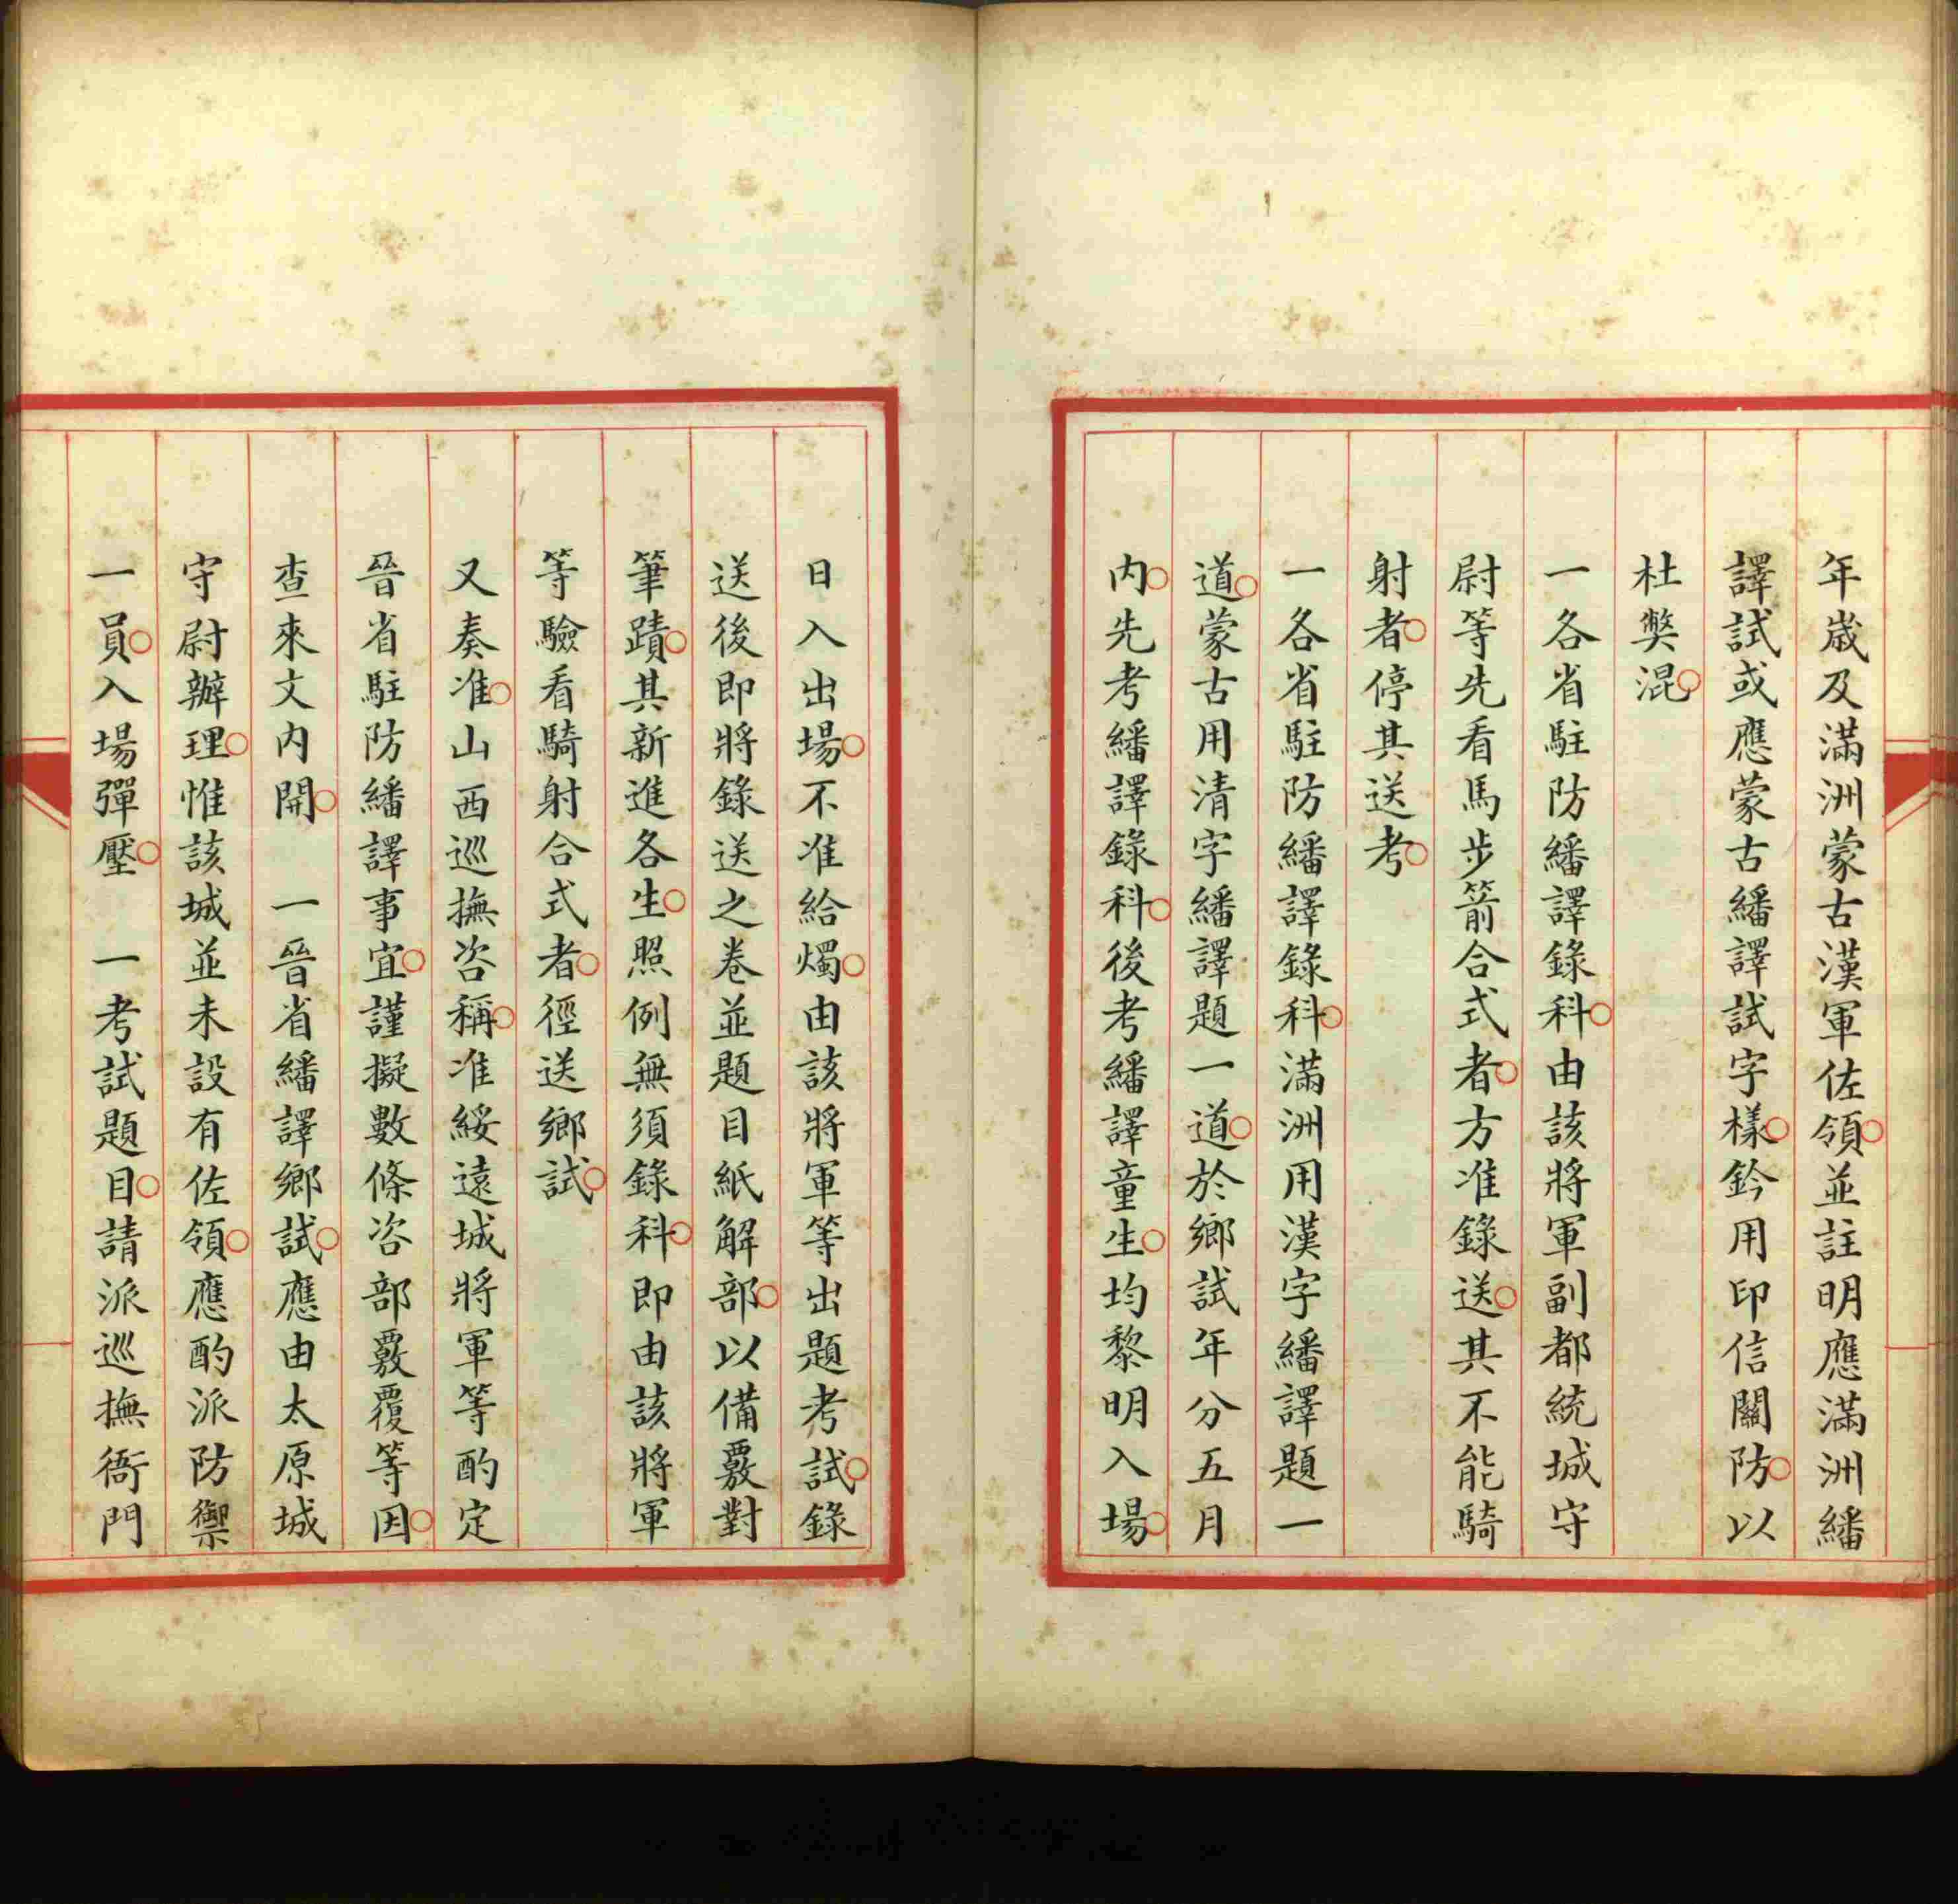 年歲及滿洲蒙古漢軍佐領○並註明應滿洲繙
譯試或應蒙古繙譯試字樣○鈐用印信關防○以
杜獘混○
一各省駐防繙譯錄科○由該將軍副都統城守
尉等先看馬步箭合式者○方准錄送○其不能騎
射者○停其送考○
一各省駐防繙譯錄科○滿洲用漢字繙譯題一
道○蒙古用清字繙譯題一道○於鄉試年分五月
內○先考繙譯錄科○後考繙譯童生○均黎明入場○
日入出場○不准給燭○由該將軍等出題考試○錄
送後即將錄送之卷並題目紙解部○以備覈對
筆蹟○其新進各生○照例無須錄科○即由該將軍
等驗看騎射合式者○徑送鄉試○
又奏准○山西巡撫咨稱○准綏遠城將軍等酌定
晉省駐防繙譯事宜○謹擬數條咨部覈覆等因○
查來文內開○　一晉省繙譯鄉試○應由太原城
守尉辦理○惟該城並未設有佐領○應酌派防禦
一員○入場彈壓○　一考試題目○請派巡撫衙門